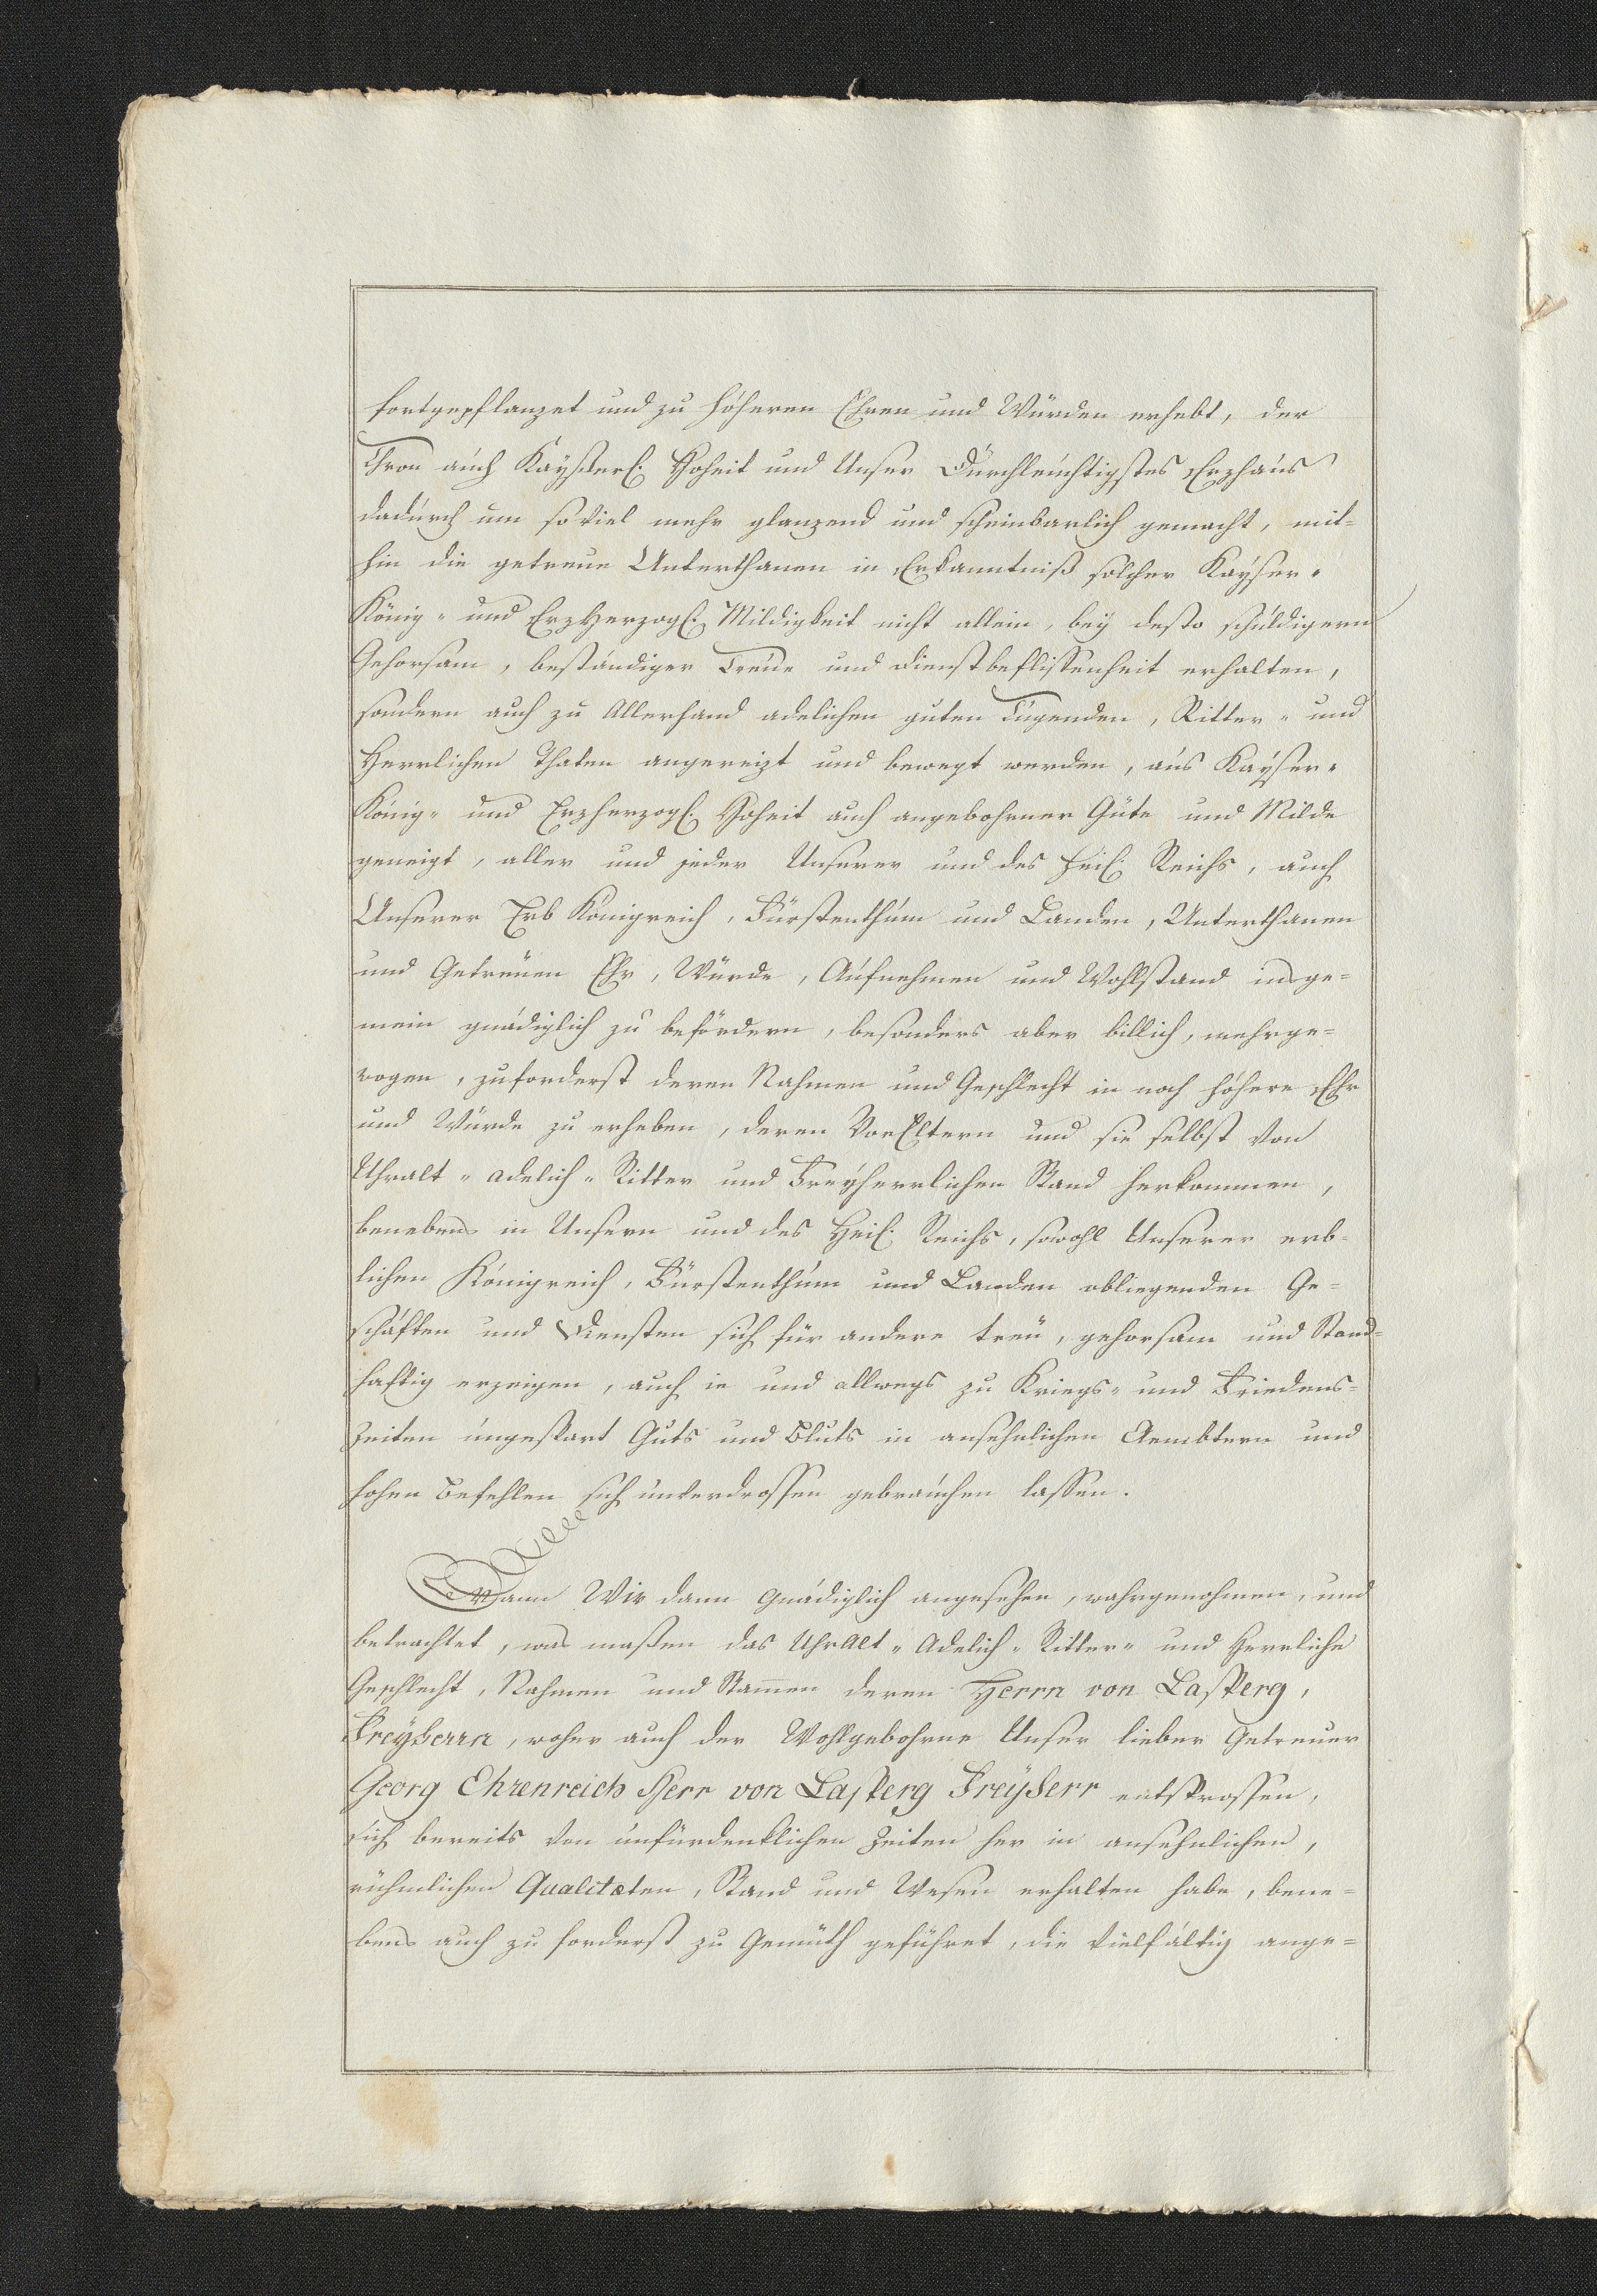 fortgepflanzet und zu höheren Ehren und Würden erhebt, der
Thron auch Kaÿßerl. Hoheit und Unser Durchleuchtigstes Erzhaus
dadurch um so viel mehr glanzend und scheinbarlich gemacht, mit-
hin die getreue Unterthanen in Erkanntniß solcher Kaÿser-
König- und ErzHerzogl. Mildigkeit nicht allein, beÿ desto schuldigern
Gehorsam, beständiger Treue und Dienstbeflissenheit erhalten,
sondern auch zu Allerhand adelichen guten Tugenden, Ritter- und
Herrlichen Thaten angereizt und bewegt werden, aus Kaÿser-
König- und Erzherzogl. Hoheit auch angebohrner Güte und Milde
geneigt, aller und jeder Unserer und des heil. Reichs, auch
Unserer Erb Königreich, Fürstenthum und Landen, Unterthanen
und Getreuen Ehr, Würde, Aufnehmen und Wohlstand insge-
mein gnädiglich zu befördern, besonders aber billich, mehrge-
wogen, zuforderst deren Nahmen und Geschlecht in noch höhere Ehr
und Würde zu erheben, deren VorEltern und sie selbst von
Uhralt- adelich- Ritter und Freÿherrlichen Stand herkommen,
benebens in Unsern und des Heil. Reichs, sowohl Unserer erb-
lichen Königreich, Fürstenthum und Landen obliegenden Ge-
schäften und Diensten sich für andere treu, gehorsam und Stand-
haftig erzeigen, auch ie und allwegs zu Kriegs- und Friedens-
Zeiten ungespart Guts und Bluts in ansehnlichen Aembtern und
hohen Befehlen sich unverdrossen gebrauchen lassen.
Wann Wir dann gnädiglich angesehen, wahrgenohmen, und
betrachtet, was maßen das UhrAlt- Adelich- Ritter- und Herrliche
Geschlecht, Nahmen und Stam̅en deren Herrn von Lasperg,
Freÿherrn, woher auch der Wohlgebohrne Unser lieber Getreuer
Georg Ehrenreich Herr von Lasperg Freÿherr entsprossen,
sich bereits von unfürdenklichen Zeiten her in ansehnlichen,
rühmlichen Qualitæten, Stand und Wesen erhalten habe, bene-
bens auch zu forderst zu Gemüth geführet, die vielfältig ange-